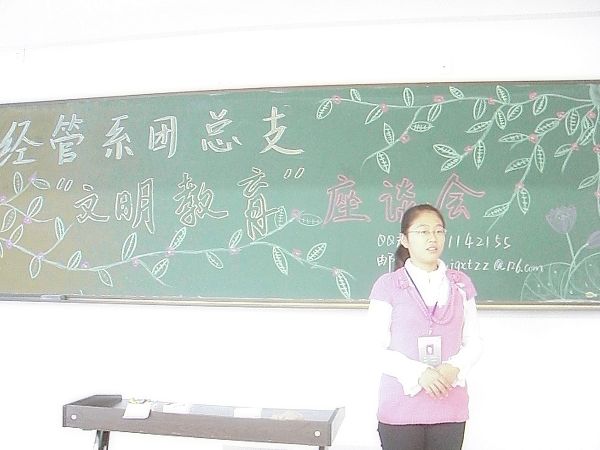 经管系团总支
"文明教育"座谈会
QQ 1142155
邮 jgxtzz@126.com